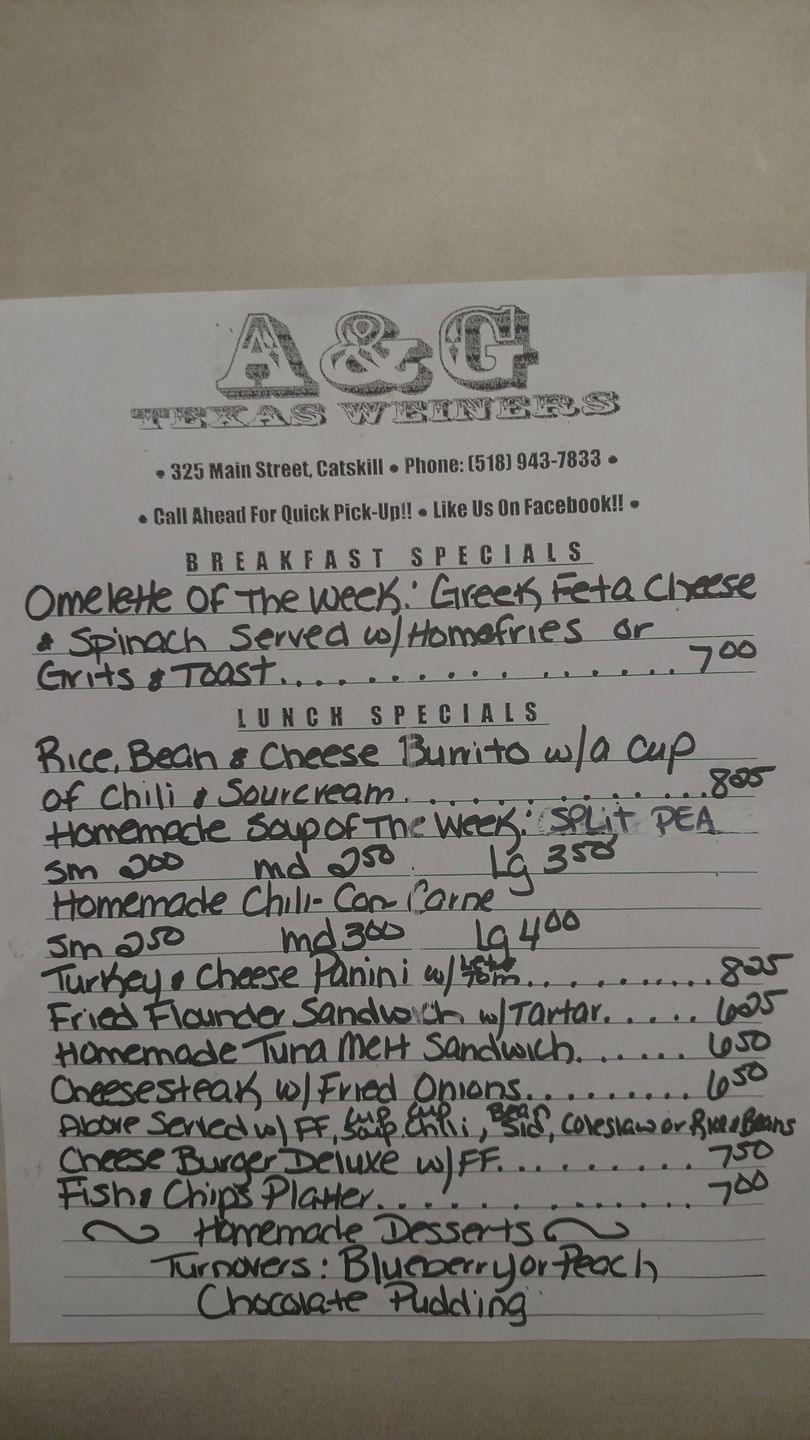 A&G
TEXAS WEINERS
• 325 Main Street, Catskill • Phone: (518) 943-7833 •
• Call Ahead For Quick Pick-Up!! • Like Us On Facebook!! •
BREAKFAST SPECIALS
Omelette Of The Week: Greek, Feta Cheese
& Spinach Served w/Homefries or
Grits & Toast.............. 7 00
LUNCH SPECIALS
Rice, Bean & Cheese Burrito w/a cup
of Chili & Sourcream............ 8 25
Homemade Soup of The Week: SPLIT PEA
Sm 2 00 md 2 50 Lg 3 50
Homemade Chili-Con Carne
Sm 2 50 md 3 00 Lg 4 00
Turkey & Cheese Panini w/ Lett Tom.......... 8 25
Fried Flounder Sandwich w/Tartar..... 6 25
Homemade Tuna Melt Sandwich...... 6 50
Cheesesteak w/ Fried Onions......... 6 50
Above Served w/ FF, Cup Soup, Cup Chili, Bean Sld, Coleslaw or Rice & Beans
Cheese Burger Deluxe w/FF......... 7 50
Fish & Chips Platter............. 7 00
~ Homemade Desserts ~
Turnovers: Blueberry or Peach
Chocolate Pudding